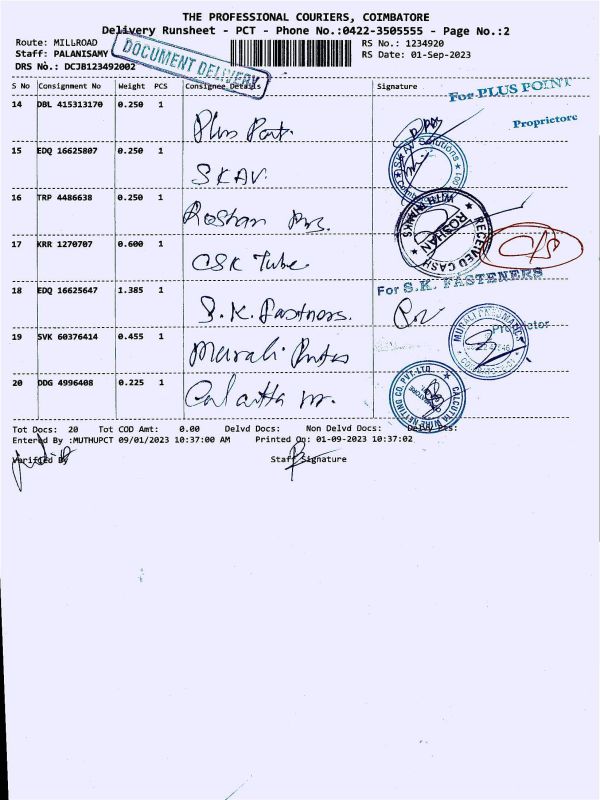 THE PROFESSIONAL COURIERS, COIMBATORE
Delivery Runsheet - PCT - Phone No.:0422-3505555 - Page No.:2
Route: MILLROAD
RS No.: 1234920
Staff: PALANISAMY
RS Date: 01-Sep-2023
DRS No.: DCJB123492002
DOCUMENT DELIVERY
S No Consignment No Weight PCS Consignee Details Signature
For PLUS POINT
14 DBL 415313170 0.250 1 Plus Point
Proprietore
15 EDQ 16625807 0.250 1 SKAV
SKAV Solutions
16 TRP 4486638 0.250 1 Roshan
RECEIVED CASH ROSHAN WITH THANKS
17 KRR 1270707 0.600 1 CSK Tube
18 EDQ 16625647 1.385 1 S.K. Fastners.
For S.K. FASTENERS
Proprietor
19 SVK 60376414 0.455 1 Murali
MURALI PNEUMATICS
20 DDG 4996408 0.225 1 Calcutta
CALCUTTA WIRE NETTING CO. PVT. LTD.
Tot Docs: 20 Tot COD Amt: 0.00 Delvd Docs: Non Delvd Docs: Delvd Pts:
Entered By :MUTHUPCT 09/01/2023 10:37:00 AM Printed On: 01-09-2023 10:37:02
Verified By Staff Signature